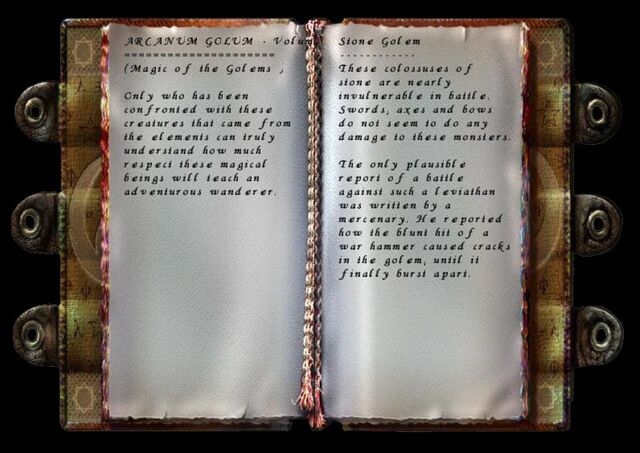 ARCANUM GOLUM - Volum
====================
(Magic of the Golems )
Only who has been
confronted with these
creatures that came from
the elements can truly
understand how much
respect these magical
beings will teach an
adventurous wanderer.
Stone Golem
............
These colossuses of
stone are nearly
invulnerable in battle.
Swords, axes and bows
do not seem to do any
damage to these monsters.
The only plausible
report of a battle
against such a leviathan
was written by a
mercenary. He reported
how the blunt hit of a
war hammer caused cracks
in the golem, until it
finally burst apart.